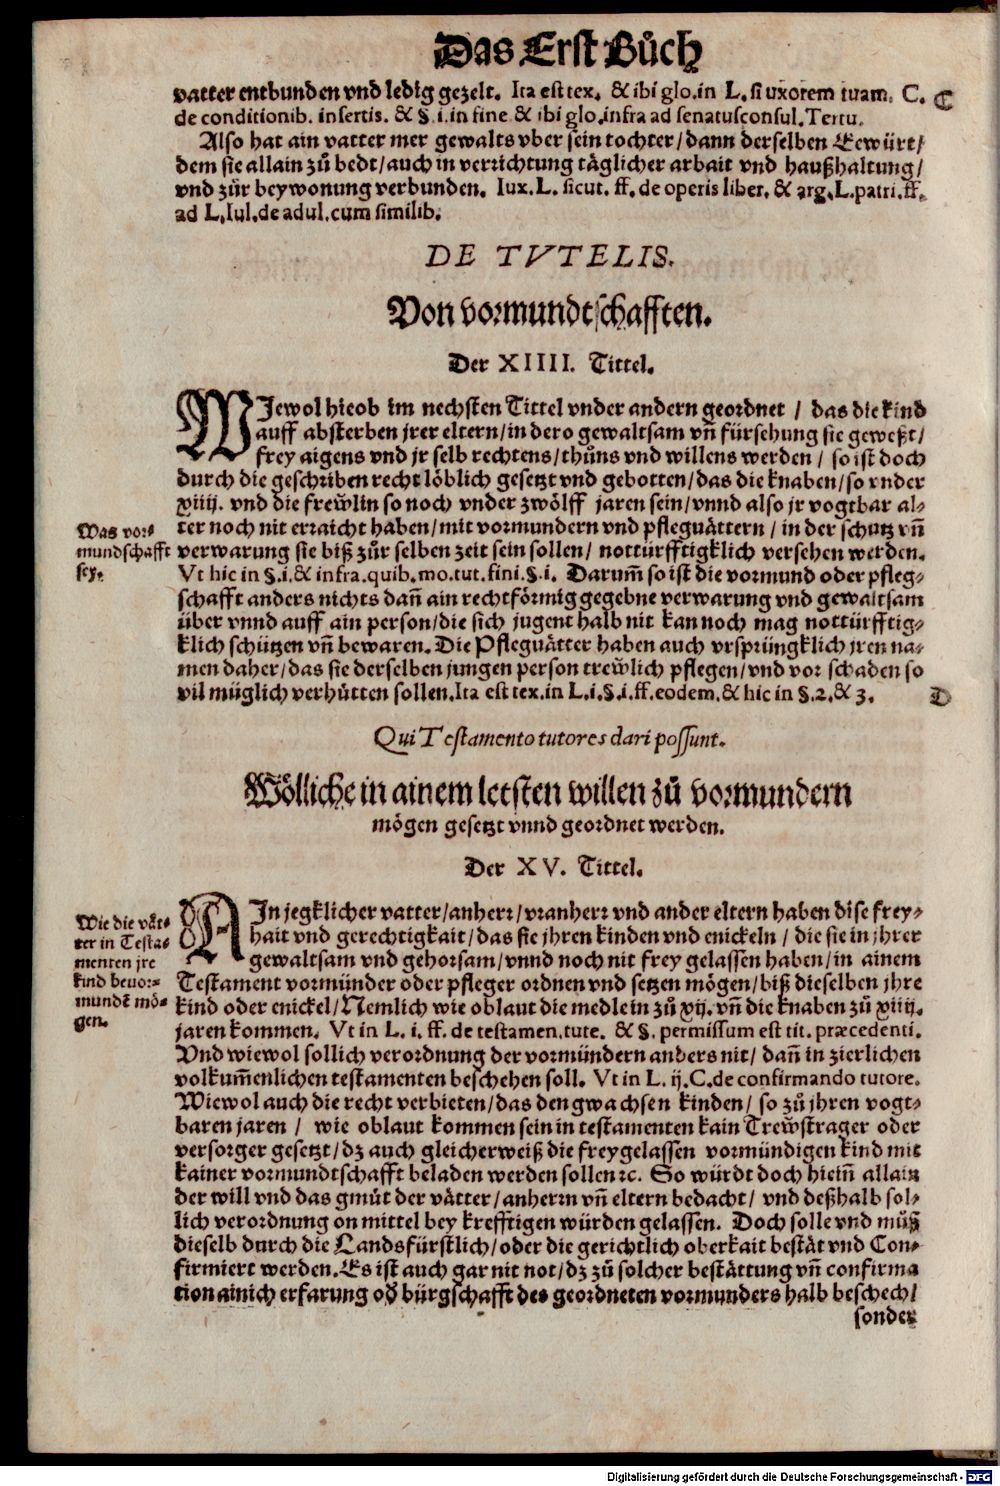 Das Erst Bůch
vatter entbunden vnd ledig gezelt. Ita est tex. & ibi glo. in L. si uxorem tuam. C. C
de conditionib. insertis. & §. i. in fine & ibi glo. infra ad senatusconsul. Tertu.
Also hat ain vatter mer gewalts vber sein tochter / dann derselben Eewürt /
dem sie allain zů bedt / auch in verrichtung täglicher arbait vnd haußhaltung /
vnd zůr beywonung verbunden. Iux. L. sicut. ff. de operis liber. & arg. L. patri. ff.
ad L. Iul. de adul. cum similib.
DE TVTELIS.
Von vormundtschafften.
Der XIIII. Tittel.
WJewol hieob im nechsten Tittel vnder andern geordnet / das die kind
auff absterben jrer eltern / in dero gewaltsam vn̄ fürsehung sie geweßt /
frey aigens vnd jr selb rechtens / thůns vnd willens werden / so ist doch
durch die geschriben recht löblich gesetzt vnd gebotten / das die knaben / so vnder
xiiij. vnd die frewlin so noch vnder zwölff jaren sein / vnnd also jr vogtbar al⸗
ter noch nit erraicht haben / mit vormundern vnd pfleguättern / in der schutz vn̄
verwarung sie biß zůr selben zeit sein sollen / notturfftigklich versehen werden.
Was vor⸗
mundschafft
sey.
Vt hic in §. i. & infra. quib. mo. tut. fini. §. i. Darum̄ so ist die vormund oder pfleg⸗
schafft anders nichts dan̄ ain rechtförmig gegebne verwarung vnd gewaltsam
über vnnd auff ain person / die sich jugent halb nit kan noch mag notturfftig⸗
klich schützen vn̄ bewaren. Die Pfleguätter haben auch vrsprüngklich jren na⸗
men daher / das sie derselben jungen person trewlich pflegen / vnd vor schaden so
vil müglich verhütten sollen. Ita est tex. in L. i. §. i. ff. eodem. & hic in §. 2. & 3. D
Qui Testamento tutores dari possunt.
Wölliche in ainem letsten willen zů vormundern
mögen gesetzt vnnd geordnet werden.
Der XV. Tittel.
Wie die vät⸗
ter in Testa⸗
menten jre
kind beuor⸗
mundē mö⸗
gen.
AJn jegklicher vatter / anherr / vranherr vnd ander eltern haben dise frey⸗
hait vnd gerechtigkait / das sie jhren kinden vnd enickeln / die sie in jhrer
gewaltsam vnd gehorsam / vnnd noch nit frey gelassen haben / in ainem
Testament vormünder oder pfleger ordnen vnd setzen mögen / biß dieselben jhre
kind oder enickel / Nemlich wie oblaut die medlein zů xij. vn̄ die knaben zů xiiij.
jaren kommen. Vt in L. i. ff. de testamen. tute. & §. permissum est tit. præcedenti.
Vnd wiewol sollich verordnung der vormündern anders nit / dan̄ in zierlichen
volkum̄enlichen testamenten beschehen soll. Vt in L. ij. C. de confirmando tutore.
Wiewol auch die recht verbieten / das den gwachsen kinden / so zů jhren vogt⸗
baren jaren / wie oblaut kommen sein in testamenten kain Trewstrager oder
versorger gesetzt / dz auch gleicherweiß die freygelassen vormündigen kind mit
kainer vormundtschafft beladen werden sollen ꝛc. So würdt doch hiein̄ allain
der will vnd das gmůt der vätter / anherrn vn̄ eltern bedacht / vnd deßhalb sol⸗
lich verordnung on mittel bey krefftigen würden gelassen. Doch solle vnd můß
dieselb durch die Landsfürstlich / oder die gerichtlich oberkait bestät vnd Con⸗
firmiert werden. Es ist auch gar nit not / dz zů solcher bestättung vn̄ confirma
tion ainich erfarung od' bürgschafft des geordneten vormunders halb beschech /
sonder
Digitalisierung gefördert durch die Deutsche Forschungsgemeinschaft - DFG